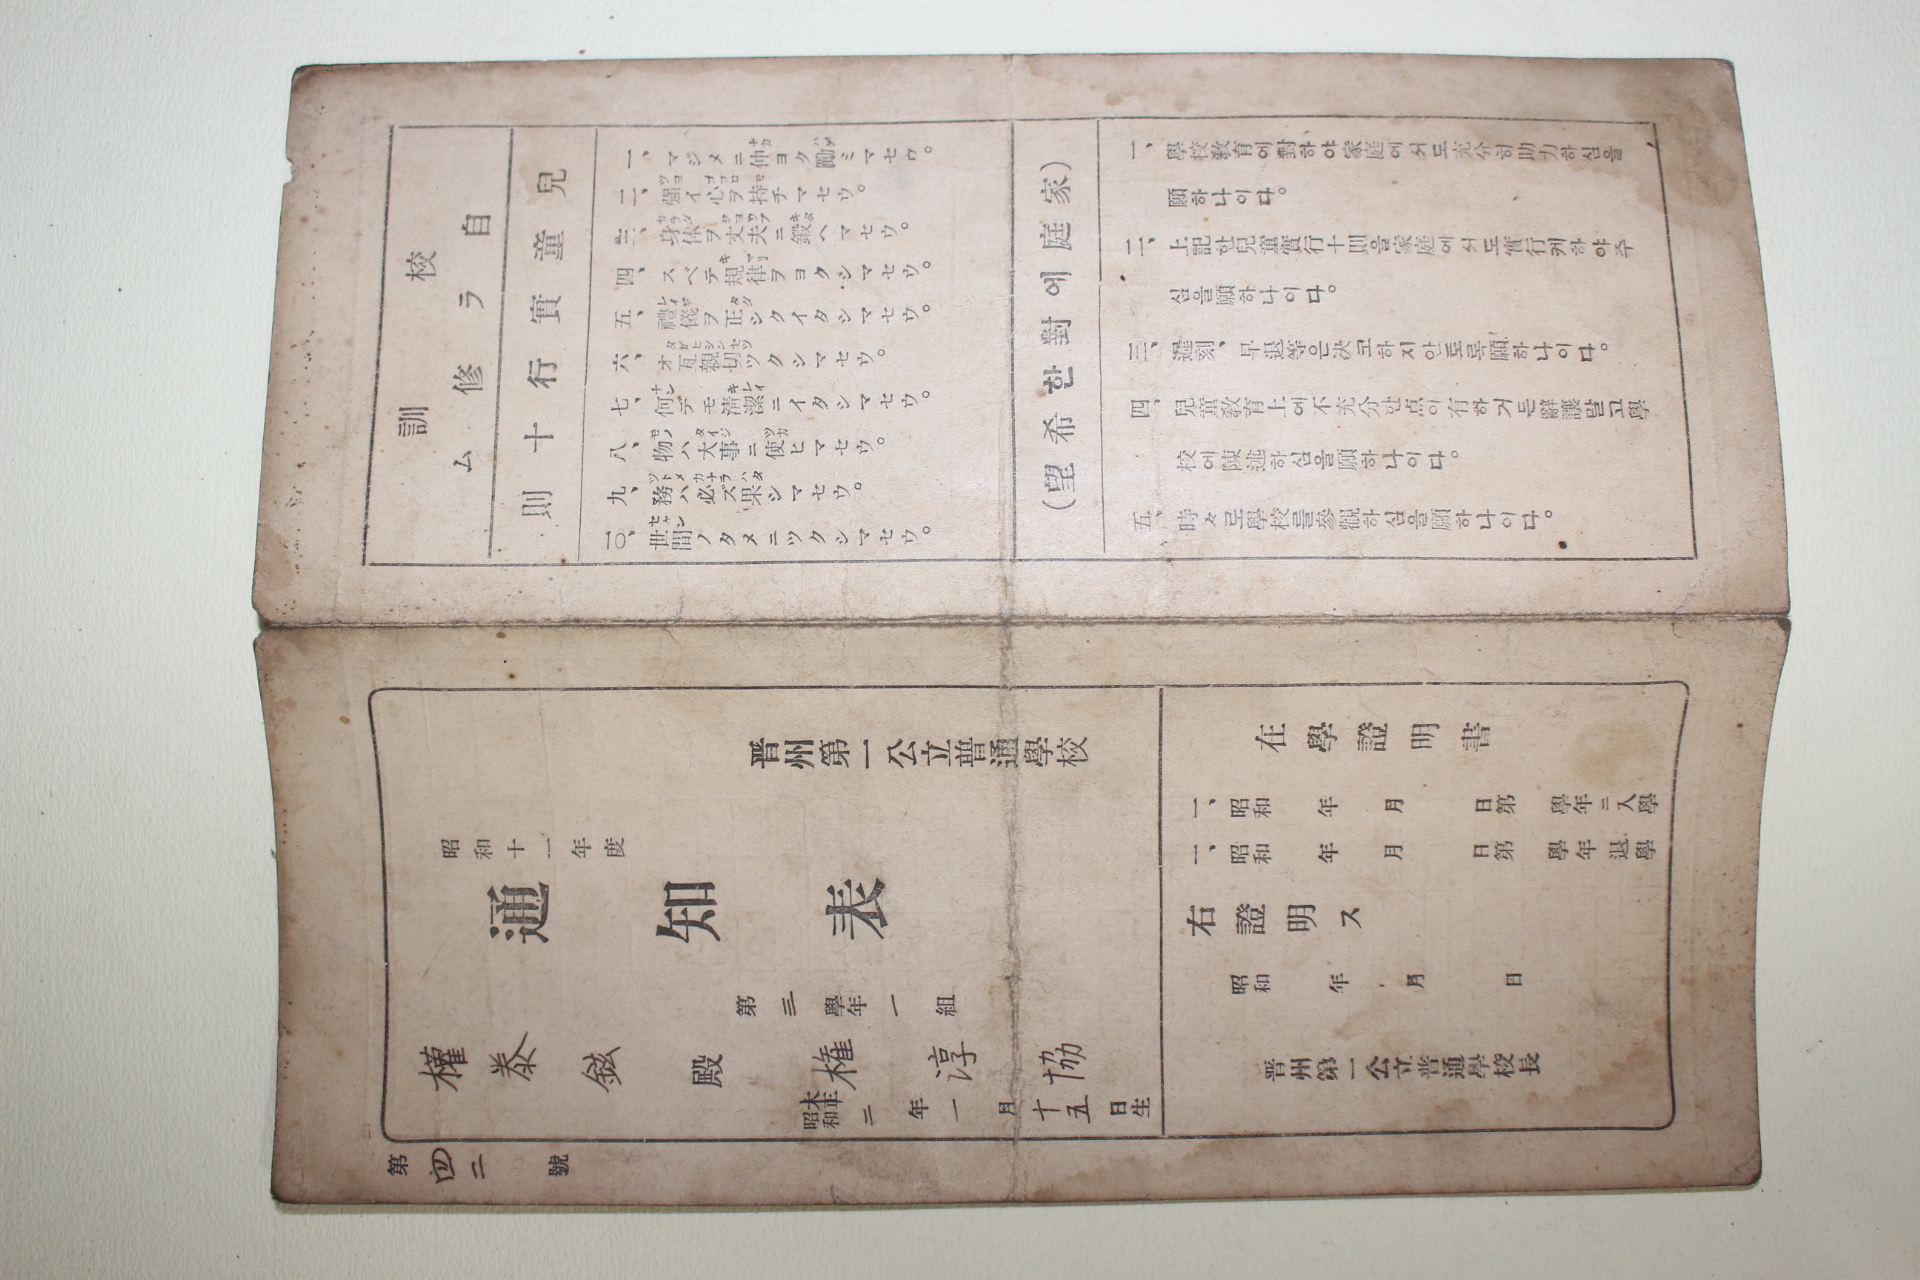 校訓
自ラ修ム
兒童實行十則
一、マジメニ仲ヨク勵ミマセウ。
二、强イ心ヲ持チマセウ。
三、身体ヲ丈夫ニ鍛ヘマセウ。
四、スベテ規律ヲヨクシマセウ。
五、禮儀ヲ正シクイタシマセウ。
六、オ互親切ツクシマセウ。
七、何デモ清潔ニイタシマセウ。
八、物ハ大事ニ使ヒマセウ。
九、務ハ必ズ果シマセウ。
一〇、世間ノタメニツクシマセウ。
(家庭에對한希望)
一、學校敎育에對하야家庭에서도充分히助力하심을
願하나이다。
二、上記한兒童實行十則을家庭에서도實行케하야주
심을願하나이다。
三、遲刻、早退等은決코하지안토록願하나이다。
四、兒童敎育上에不充分한点이有하거든辭讓말고學
校에陳述하심을願하나이다。
五、時々로學校를參觀하심을願하나이다。
晋州第一公立普通學校
昭和十一年度
通知表
第三學年一組
權泰鉉殿
権淳協
昭和大正二年一月十五日生
第四二號
在學證明書
一、昭和年月日第學年ニ入學
一、昭和年月日第學年退學
右證明ス
昭和年月日
晋州第一公立普通學校長